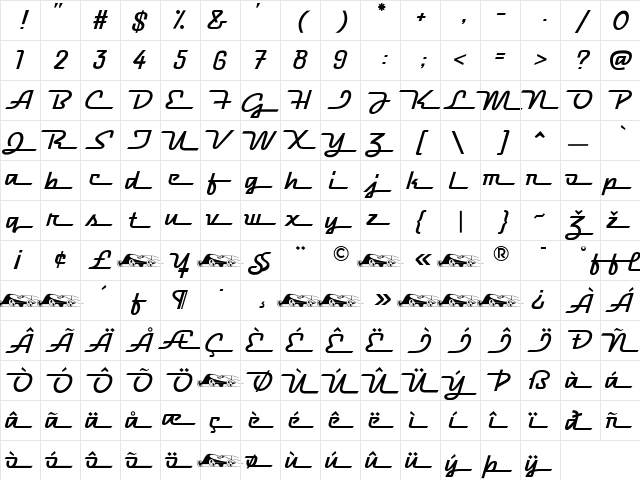 ! " # $ % & ' ( ) * + , - . / 0
1 2 3 4 5 6 7 8 9 : ; < = > ? @
A B C D E F G H I J K L M N O P
Q R S T U V W X Y Z [ \ ] ^ _ `
a b c d e f g h i j k l m n o p
q r s t u v w x y z { | } ~ Ž ž
¡ ¢ £ ¥ § ¨ © « ® ¯ °
´ ƒ ¶ · ¸ » ¿ À Á
Â Ã Ä Å Æ Ç È É Ê Ë Ì Í Î Ï Ð Ñ
Ò Ó Ô Õ Ö Ø Ù Ú Û Ü Ý Þ ß à á
â ã ä å æ ç è é ê ë ì í î ï ð ñ
ò ó ô õ ö ø ù ú û ü ý þ ÿ